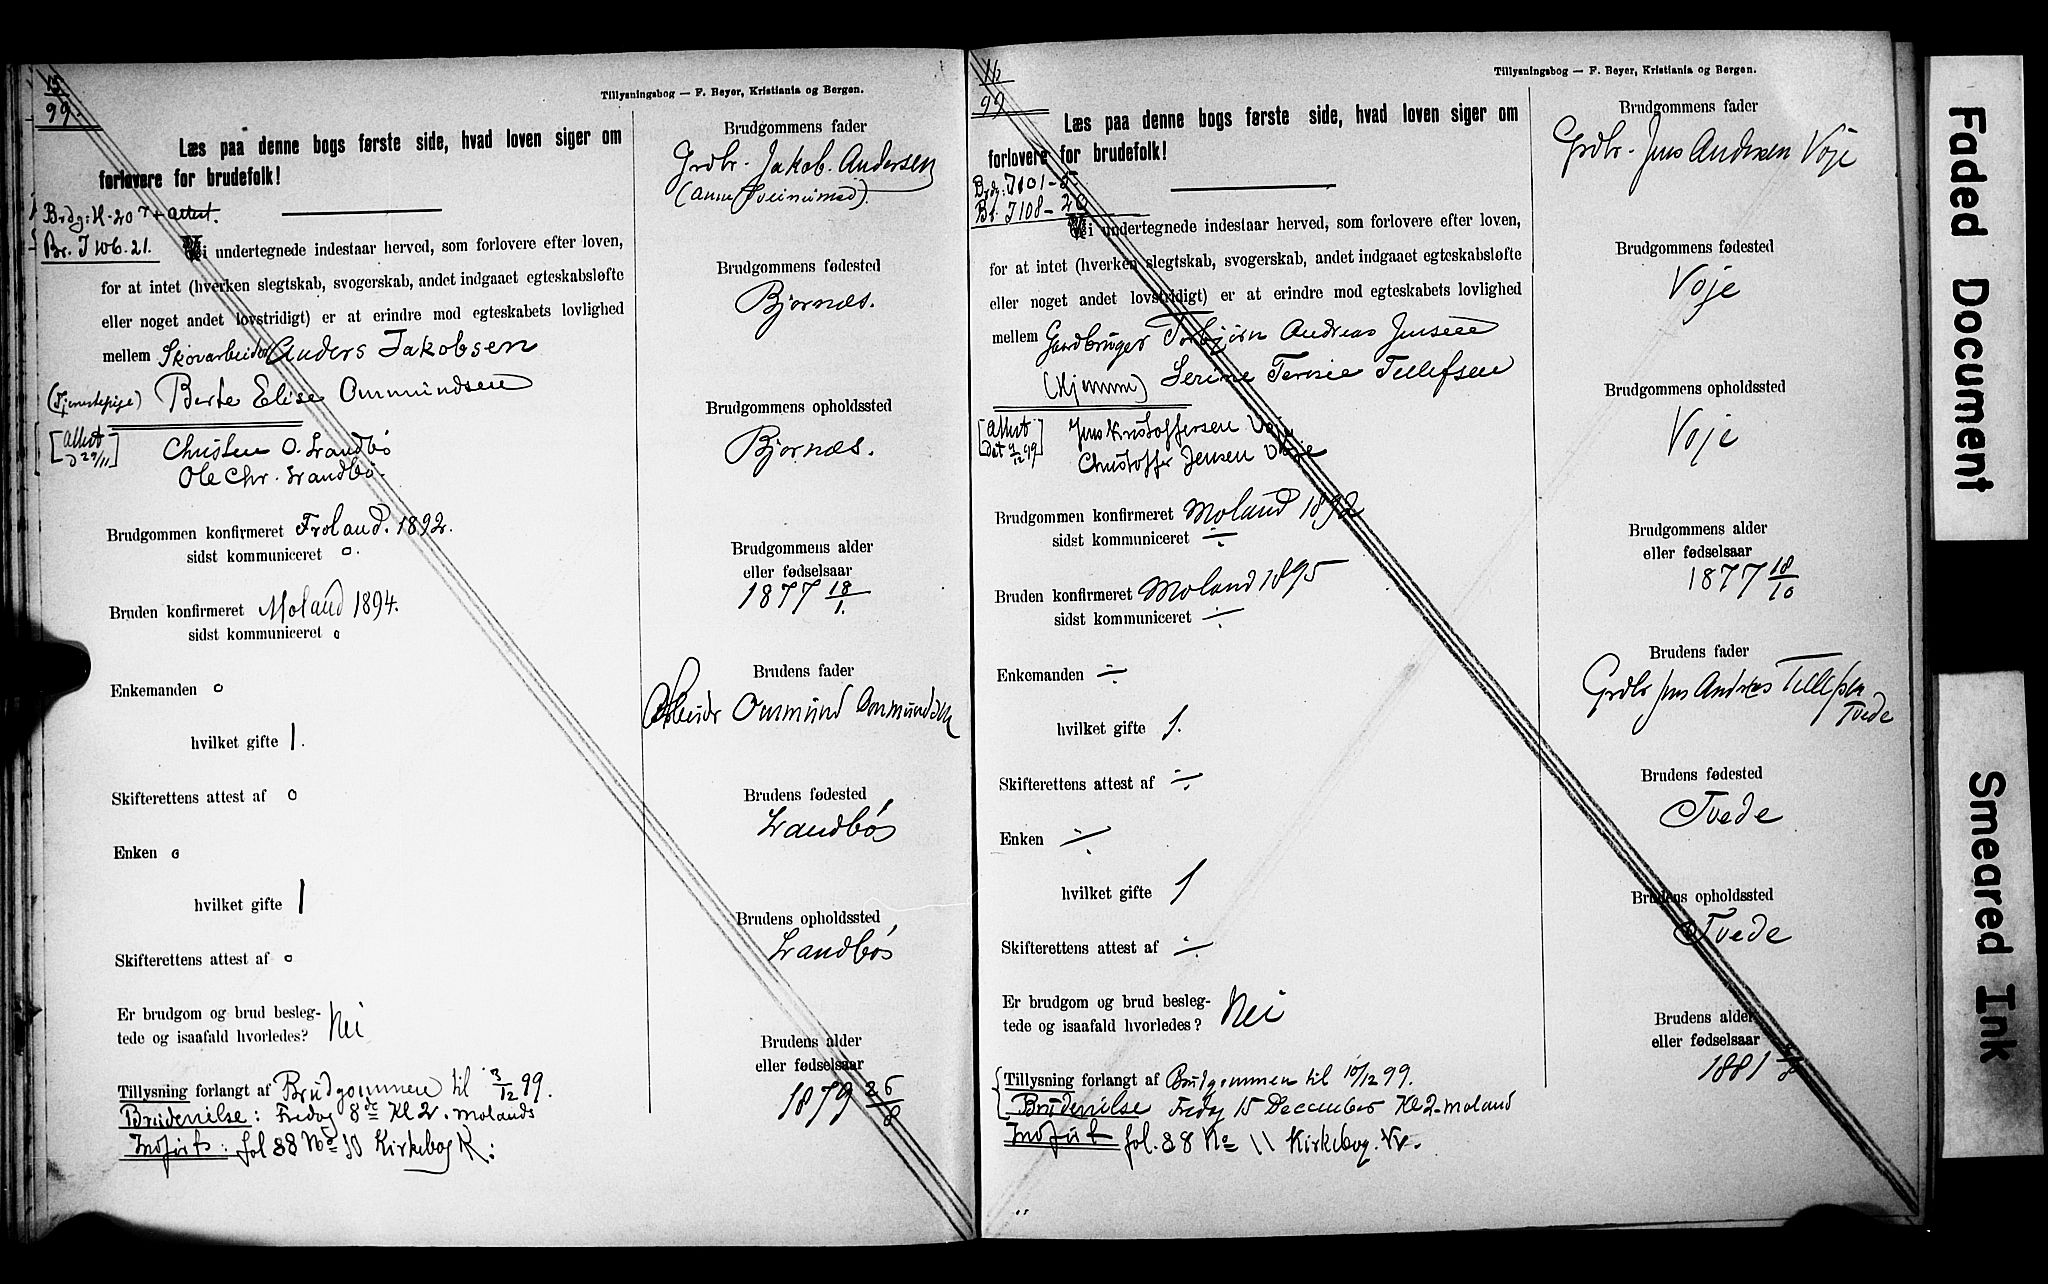 15
99.
Tillysningsbog — F. Beyer, Kristiania og Bergen.
Læs paa denne bogs første side, hvad loven siger om
forlovere for brudefolk!
Br. I 106. 21.
Vi undertegnede indestaar herved, som forlovere efter loven,
for at intet (hverken slegtskab, svogerskab, andet indgaaet egteskabsløfte
eller noget andet lovstridigt) er at erindre mod egteskabets lovlighed
mellem Skovarbeider Anders Jakobsen
(Tjenestepige) Berte Elise Ommundsen
[attest
d 29/11]
Christen O. Trandbø
Ole Chr. Trandbø.
Brudgommen konfirmeret Froland. 1892.
sidst kommuniceret o.
Bruden konfirmeret Moland 1894.
sidst kommuniceret o
Enkemanden o
hvilket gifte 1.
Skifterettens attest af o
Enken o
hvilket gifte 1
Skifterettens attest af o
Er brudgom og brud besleg-
tede og isaafald hvorledes? Nei
Tillysning forlangt af Brudgommen til 3/12 99.
Brudevielse: Fredag 8de Kl 2. Molands
Indført: fol 88 No 10 Kirkebog K:
Brudgommens fader
Grdbr. Jakob Andersen
Brudgommens fødested
Bjornæs.
Brudgommens opholdssted
Bjornæs.
Brudgommens alder
eller fødselsaar
1877 18/1.
Brudens fader
Arbeider Ommund Ommundsen
Brudens fødested
Trandbø
Brudens opholdssted
Trandbø
Brudens alder
eller fødselsaar
1879 26/8
16
99
Tillysningsbog — F. Beyer, Kristiania og Bergen.
Læs paa denne bogs første side, hvad loven siger om
forlovere for brudefolk!
Brdg: I 101-5
Br. I 108-26
Vi undertegnede indestaar herved, som forlovere efter loven,
for at intet (hverken slegtskab, svogerskab, andet indgaaet egteskabsløfte
eller noget andet lovstridigt) er at erindre mod egteskabets lovlighed
mellem Gaardbruger Torbjørn Andreas Jensen
(Hjemme) Serine Terese Tellefsen
[attest
dat 7/12 99]
Jens Kristoffersen Voje
Christoffer Jensen Voje
Brudgommen konfirmeret Moland 1892
sidst kommuniceret ÷
Bruden konfirmeret Moland 1895
sidst kommuniceret ÷
Enkemanden ÷
hvilket gifte 1.
Skifterettens attest af ÷
Enken ÷
hvilket gifte 1
Skifterettens attest af ÷
Er brudgom og brud besleg-
tede og isaafald hvorledes? Nei
Tillysning forlangt af Brudgommen til 10/12 99.
Brudevielse Fredag 15 December Kl 2 - Moland
Indført fol. 88 No 11 Kirkebog.
Brudgommens fader
Grdbr. Jens Andersen Voje
Brudgommens fødested
Voje
Brudgommens opholdssted
Voje
Brudgommens alder
eller fødselsaar
1877 18/10
Brudens fader
Grdbr Jens Andreas Tellefsen
Tvede
Brudens fødested
Tvede
Brudens opholdssted
Tvede
Brudens alder
eller fødselsaar
1881
Faded Document
Smeared Ink